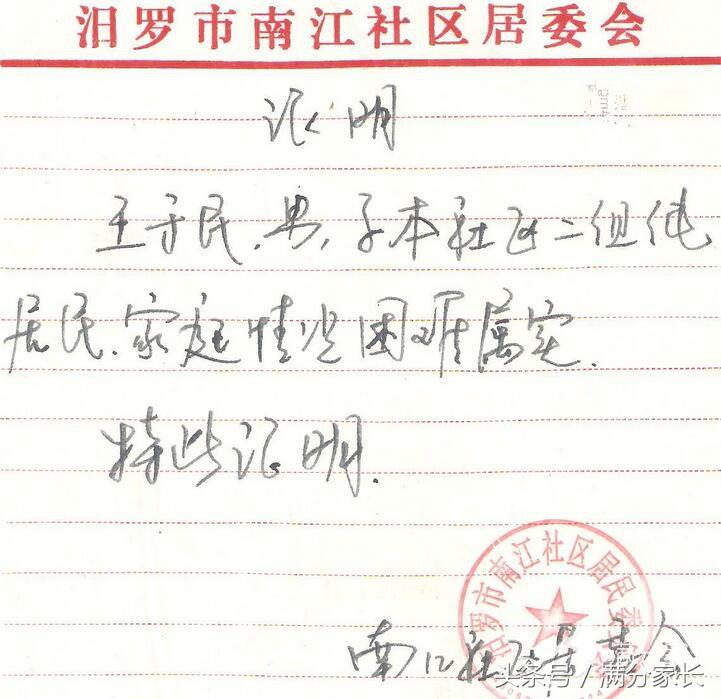 汨罗市南江社区居委会
证明
王于民.男,子本社区二组
居民.家庭情况困难属实.
特此证明.
汨罗市南江社区居民委
南江社区居委会
头条号／满分家长